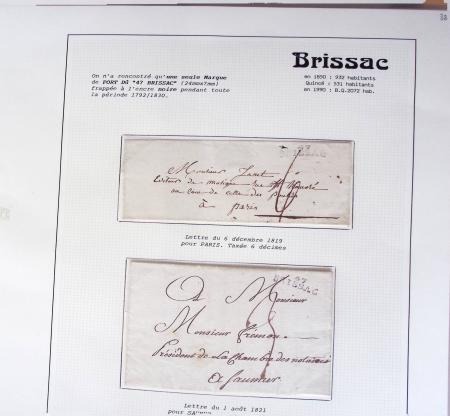 38
Brissac
On n'a rencontré qu'une seule Marque
de PORT DÛ "47 BRISSAC" (24mmx7mm)
frappée à l'encre noire pendant toute
la période 1792/1830.
en 1850 : 932 habitants
Quincé : 531 habitants
en 1990 : B.Q.2072 hab.
BRISSAC
Monsieur Janet
Editeur de musique rue St Honoré
au coin de celle des
à paris
Lettre du 6 décembre 1819
pour PARIS. Taxée 6 décimes
47
BRISSAC
A Monsieur
Monsieur
Président de la Chambre des notaires
a Saumur
Lettre du 1 août 1821
pour